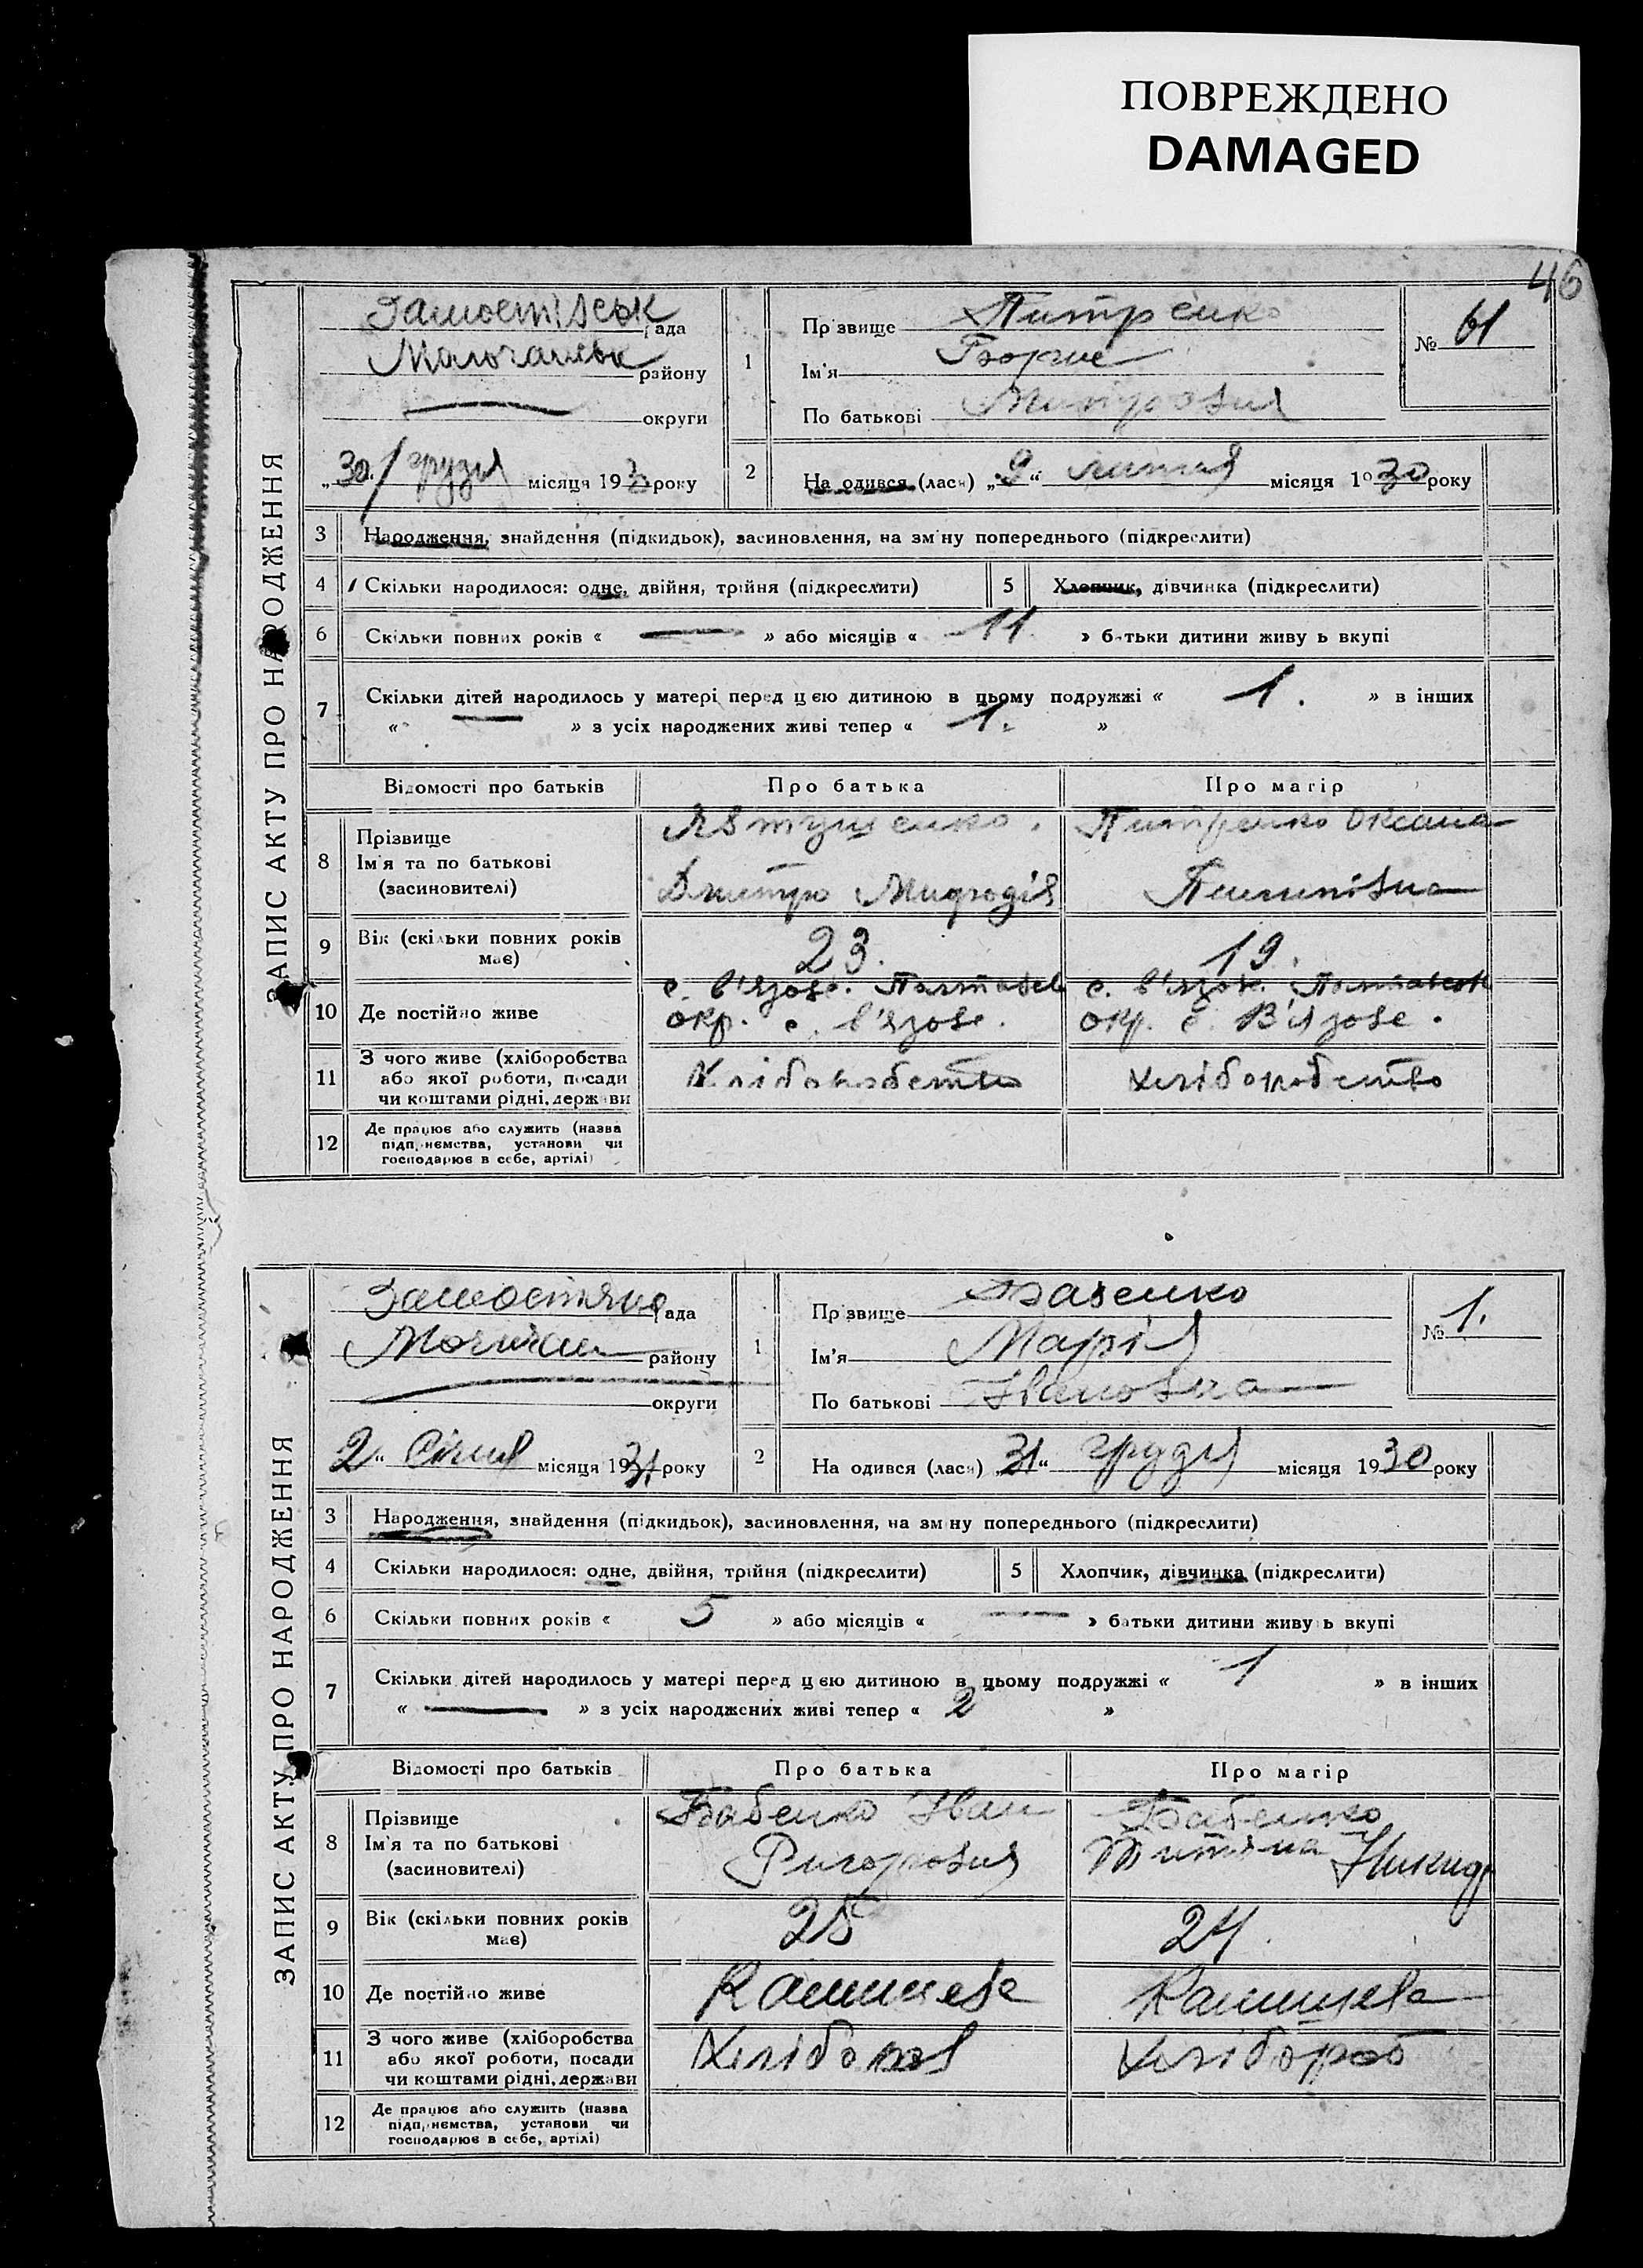 ПОВРЕЖДЕНО
DAMAGED
46
ЗАПИС АКТУ ПРО НАРОДЖЕННЯ
Замостівськ рада
району
округи
„30“ грудня місяця 1930 року
1
Прізвище Питренко
Ім'я
По батькові
№ 61
2
Народився (лася) „9“ місяця 1930 року
3 Народження, знайдення (підкидьок), засиновлення, на зміну попереднього (підкреслити)
4 Скільки народилося: одне, двійня, трійня (підкреслити) 5 Хлопчик, дівчинка (підкреслити)
6 Скільки повних років « — » або місяців « 11 » батьки дитини живуть вкупі
7 Скільки дітей народилось у матері перед цією дитиною в цьому подружжі « 1. » в інших
« — » з усіх народжених живі тепер « 1. »
Відомості про батьків Про батька Про матір
8 Прізвище
Ім'я та по батькові
(засиновителі)
Явтушенко. Питренко Оксана
Дмитро Мифодів Пилипівна
9 Вік (скільки повних років має) 23. 19.
10 Де постійно живе
с. В'язове. с. В'язове.
окр. с. В'язове. окр. с. В'язове.
11 З чого живе (хліборобства
або якої роботи, посади
чи коштами рідні, держави
Хліборобство хліборобство
12 Де працює або служить (назва
підприємства, установи чи
господарює в себе, артілі)
ЗАПИС АКТУ ПРО НАРОДЖЕННЯ
рада
району
округи
2“ Січня місяця 1931 року
1
Прізвище Бабенко
Ім'я Марія
По батькові Івановна
№ 1.
2
Народився (лася) „31“ грудня місяця 1930 року
3 Народження, знайдення (підкидьок), засиновлення, на зміну попереднього (підкреслити)
4 Скільки народилося: одне, двійня, трійня (підкреслити) 5 Хлопчик, дівчинка (підкреслити)
6 Скільки повних років « 5 » або місяців « — » батьки дитини живуть вкупі
7 Скільки дітей народилось у матері перед цією дитиною в цьому подружжі « 1 » в інших
« — » з усіх народжених живі тепер « 2 »
Відомості про батьків Про батька Про матір
8 Прізвище
Ім'я та по батькові
(засиновителі)
Бабенко Іван Бабенко
Ригорович
9 Вік (скільки повних років має) 25 24.
10 Де постійно живе
11 З чого живе (хліборобства
або якої роботи, посади
чи коштами рідні, держави
Хлібороб Хлібороб
12 Де працює або служить (назва
підприємства, установи чи
господарює в себе, артілі)